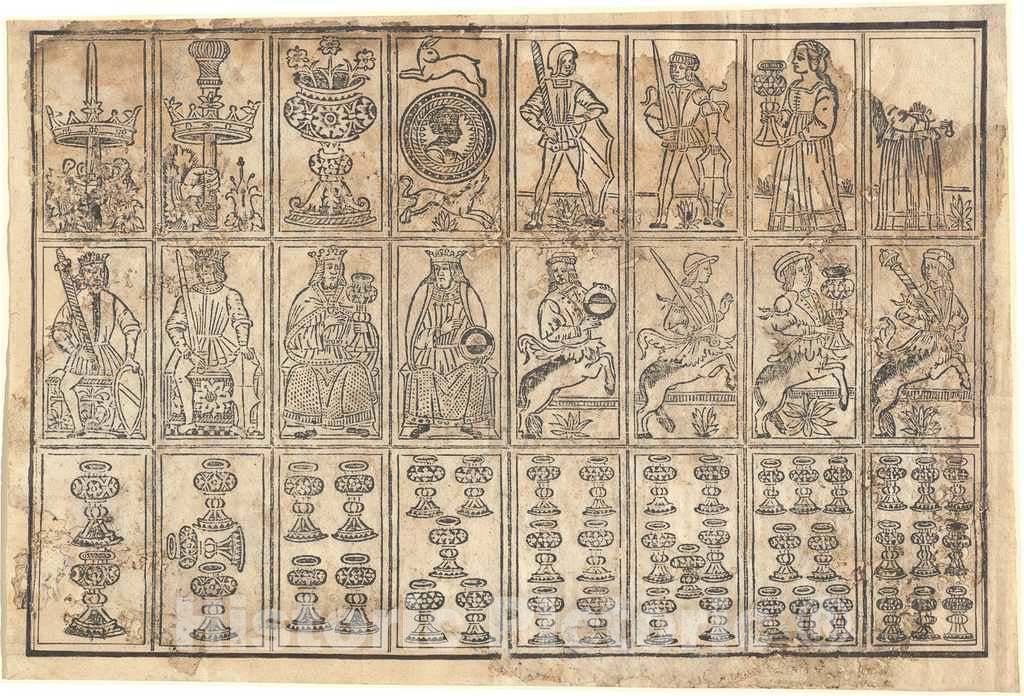 Historic Pictoric